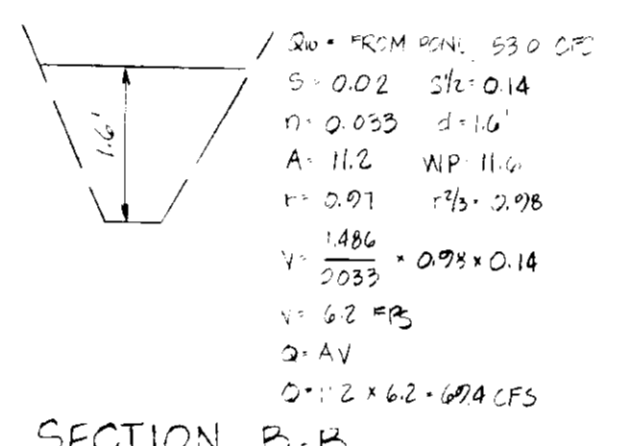 Q10 = FROM POND, 53.0 CFS
S = 0.02 S½ = 0.14
n = 0.033 d = 1.6'
1.6'
A = 11.2 WP = 11.6
r = 0.97 r2/3 = 0.98
V = 1.486 / 0.033 × 0.98 × 0.14
V = 6.2 FPS
Q = AV
Q = 11.2 × 6.2 = 69.4 CFS
SECTION B-B